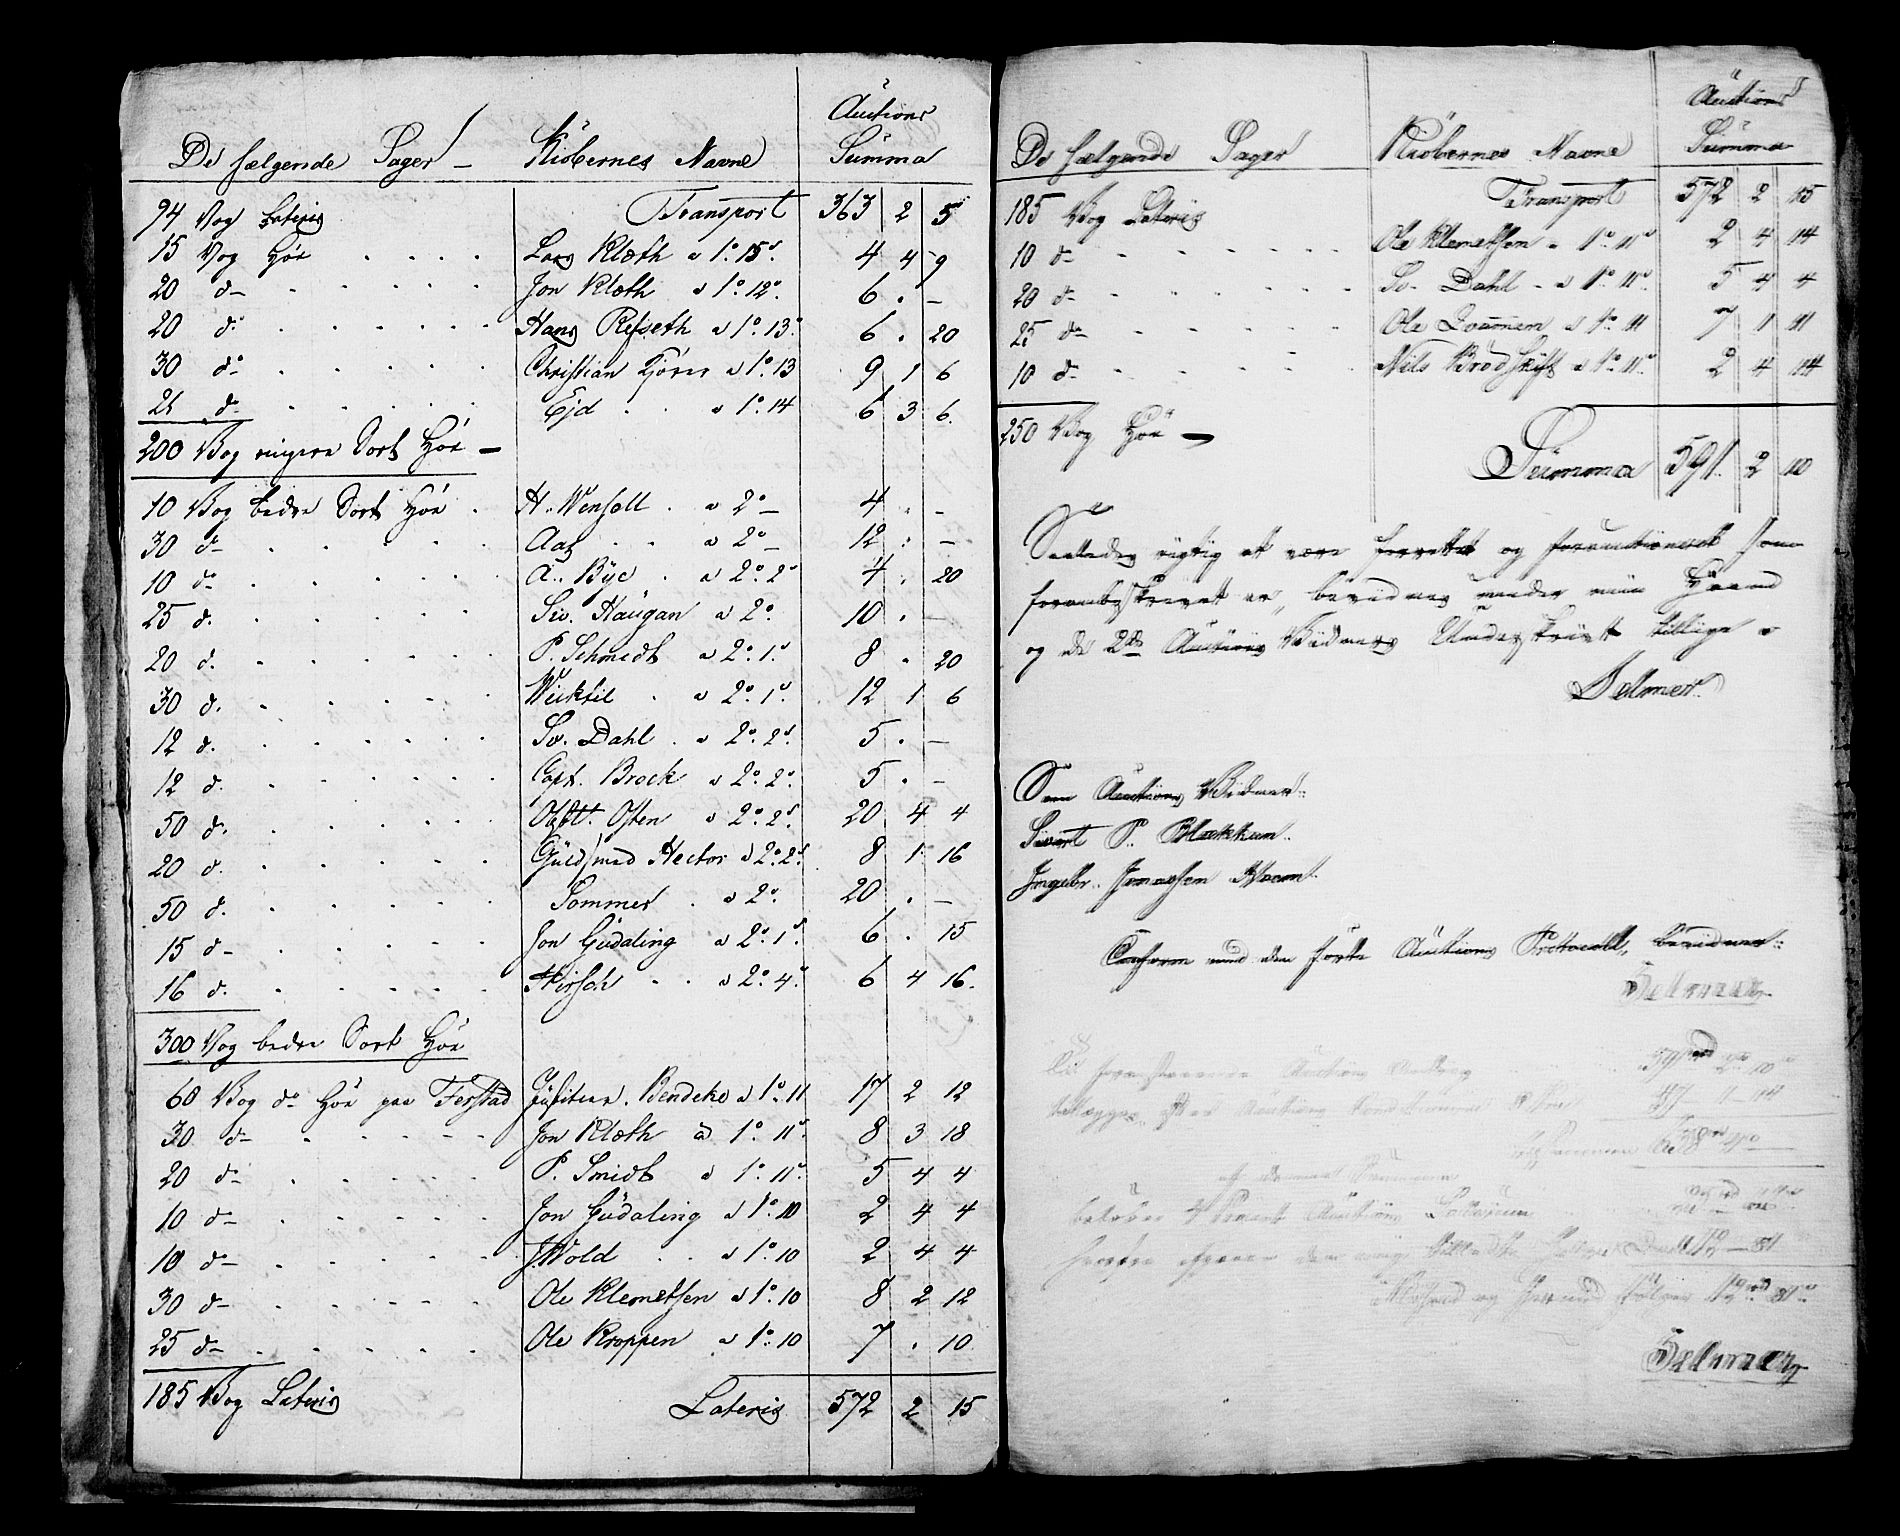 De sælgende Sager — Kiøbernes Navne Auctions Summa
94 Vog Lateris Transport 363 2 5
15 Vog Høe Lars Klæth a 1° 15s. 4 4 9
20 do Jon Klæth a 1° 12s. 6 . —
20 do Hans Refseth a 1° 13s. 6 . 20
30 do Christian Kjører a 1° 13 9 1 6
21 do Ejd a 1° 14 6 3 6.
200 Vog ringere Sort Høe —
10 Vog bedre Sort Høe H. Wensell a 2° — 4 . —
30 do Aas a 2° — 12 . —
10 do A. Bye a 2° 2s 4 . 20
25 d. Siv. Haugan a 2° 10 . —
20 d. P. Schmidt a 2° 1s. 8 . 20
30 d. Wicktil a 2° 1s. 12 1 6
12 d. Sv. Dahl a 2° 2s. 5 . —
12 d. Capt. Brock a 2° 2s. 5 . —
50 d. Osten a 2° 2s. 20 4 4
20 d. Guldsmed Hector a 2° 2s. 8 1 16
50 d. Sommer a 2°. 20 . —
15 do Jon Gudaling a 2° 1s. 6 . 15
16 d. Hirsch a 2° 4s. 6 4 16.
300 Vog bedre Sort Høe
60 Vog do Høe paa Ferstad Bendeke a 1° 11 17 2 12
30 do Jon Klæth a 1° 11s. 8 3 18
20 do P. Smidt a 1° 11s. 5 4 4
10 do Jon Gudaling a 1° 10 2 4 4
10 do J. Wold a 1° 10 2 4 4
30 do Ole Klemetsen a 1° 10 8 2 12
25 do Ole Kroppen a 1° 10 7 . 10
185 Vog Lateris Lateris 572 2 15
De sælgende Sager Kiøbernes Navne Auctions Summa
185 Vog Lateris Transport 572 2 15
10 do Ole Klemetsen a 1° 11s 2 4 14
20 do Sv. Dahl a 1° 11s. 5 4 4
25 do Ole a 1° 11 7 1 11
10 do Nils Brødskift a 1° 11s 2 4 14
250 Vog Høe —
Summa 591. 2 10
Saaledes rigtig at være forrettet og forauctioneret som
foranbeskrevet er, bevidnes under min Haand
og de 2de Auctions Vidners Underskrivt tillige
Selmer.
Som Auctions Vidner:
Sivert P. Blækkan.
Ingebr. Jonassen Moe
Conform med den førte Auctions Protocoll, bevidner:
Selmer
foranstaaende Auctions
tillægges efter Auctions
tilsammen 638
af denne Summa
beløber 4 Procent Auctions
Selmer